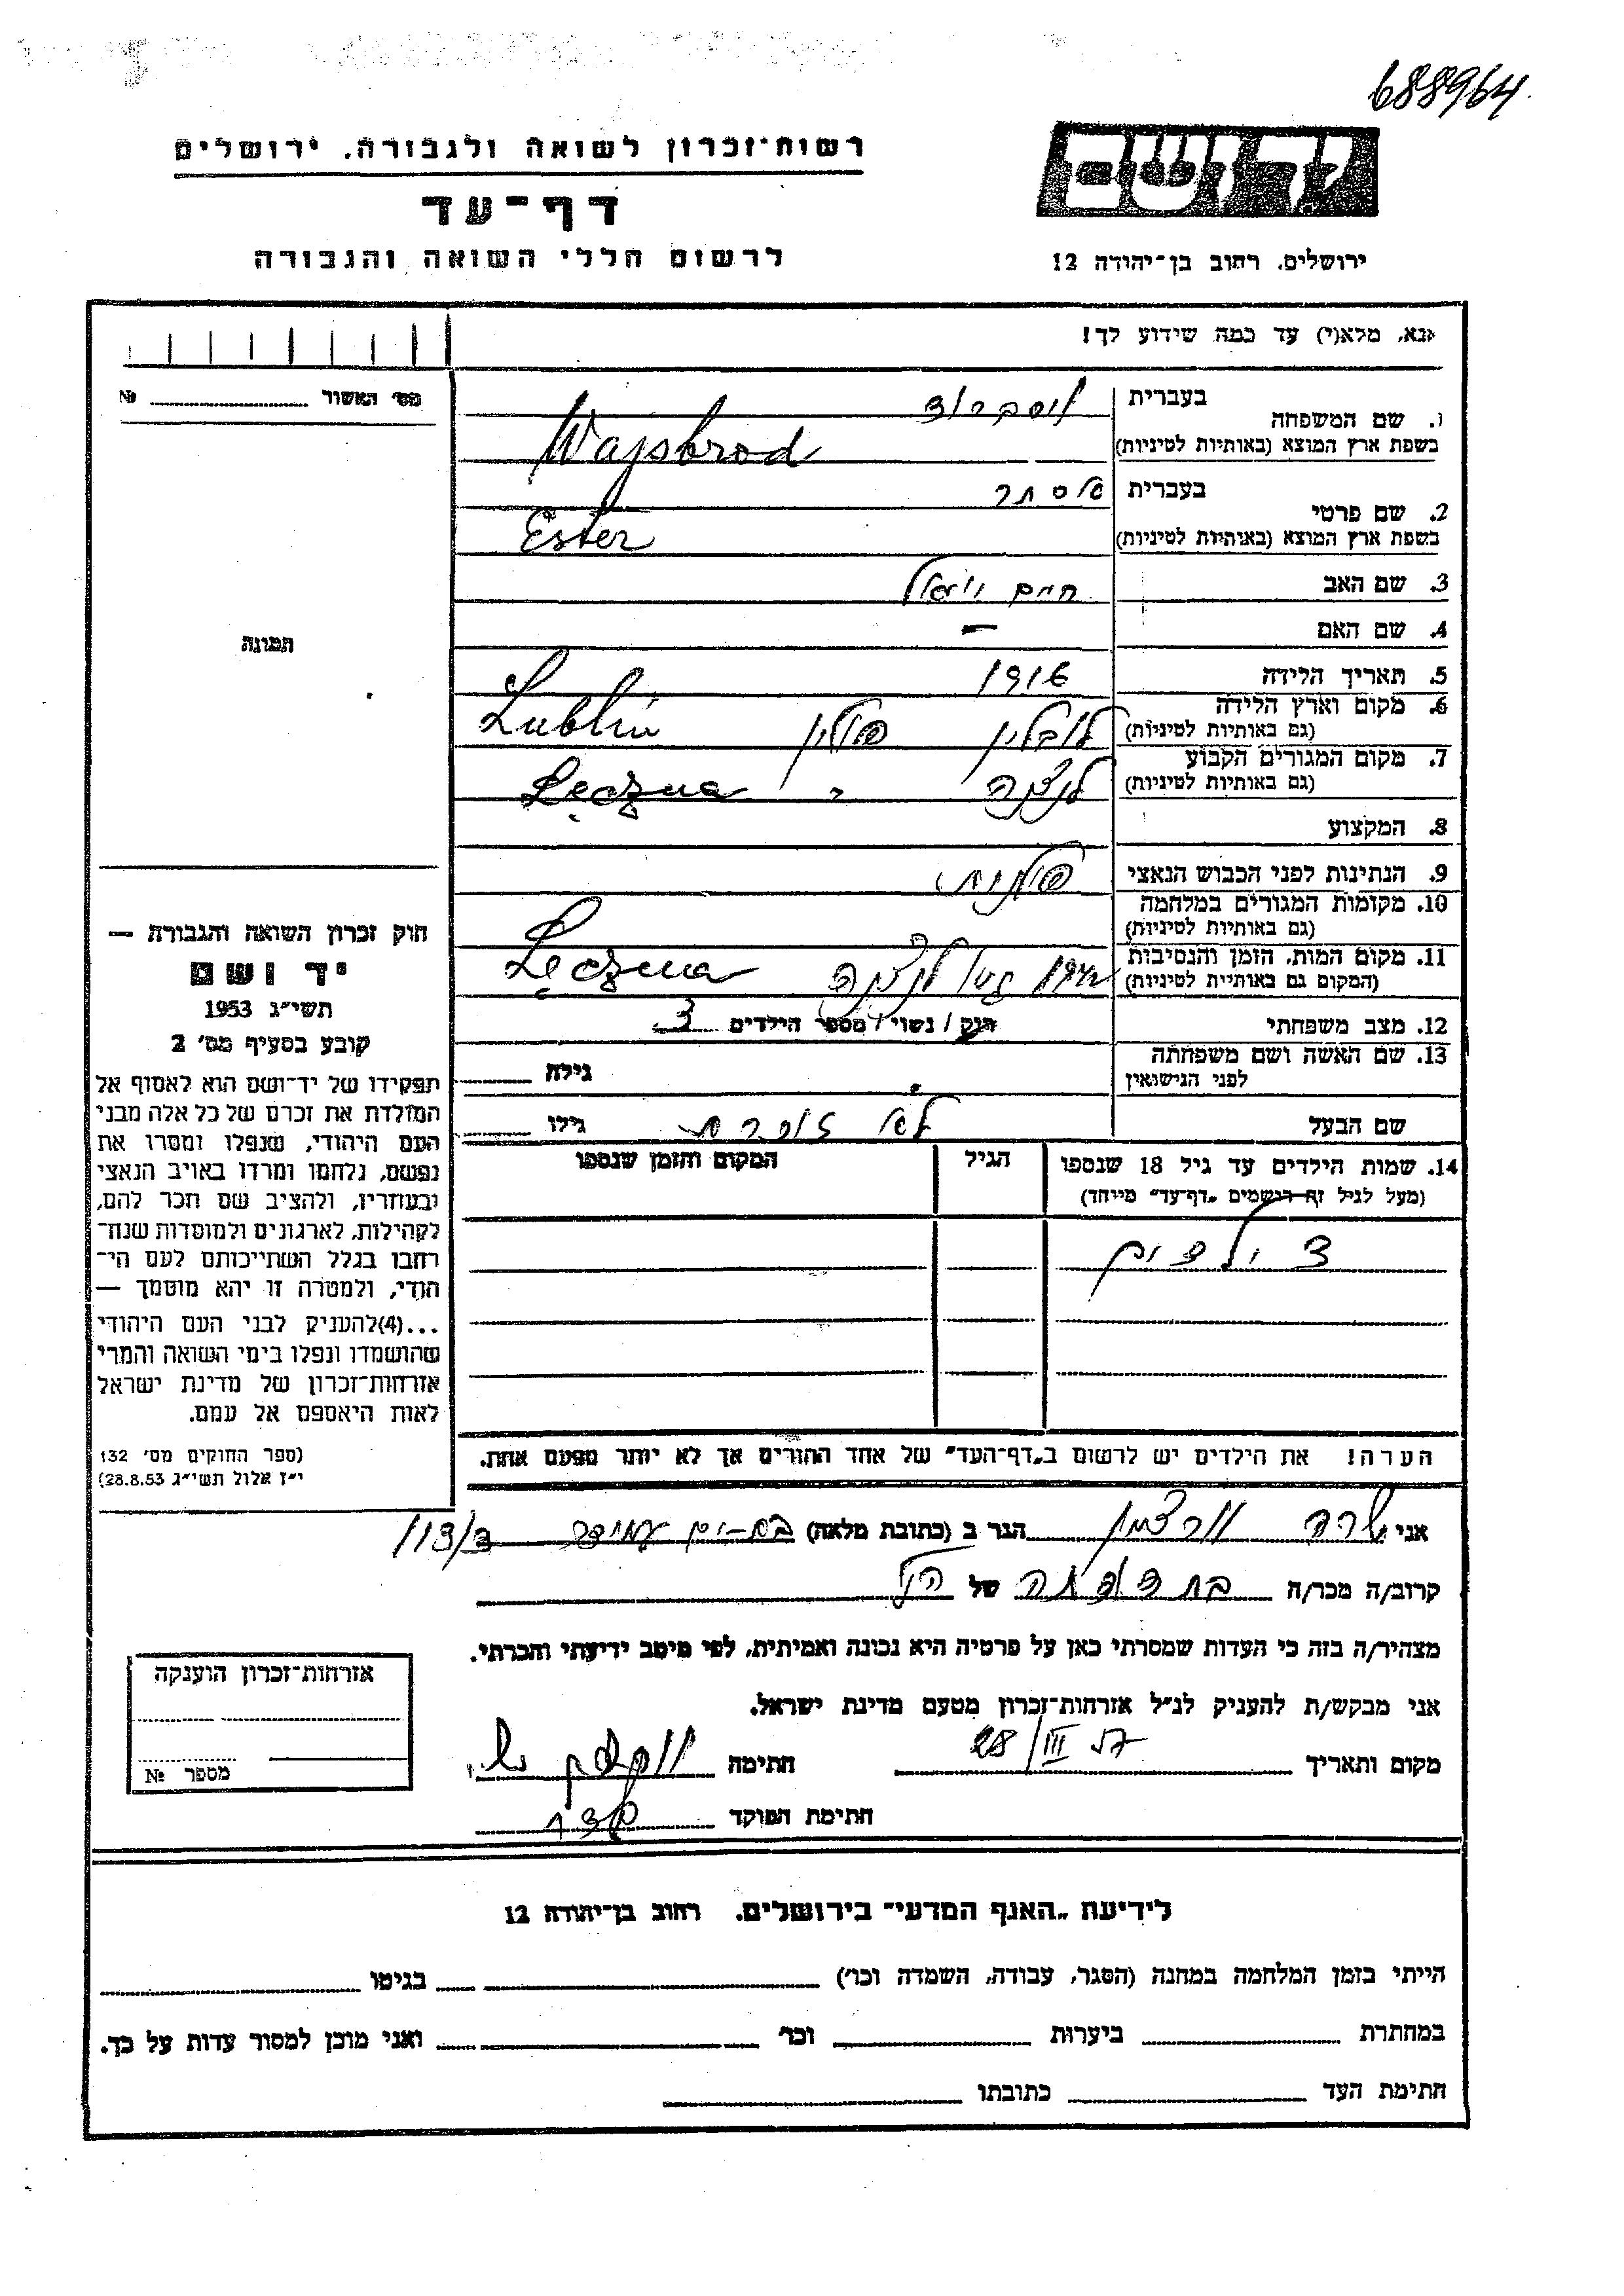 688964
רשות־זכרון לשואה ולגבורה. ירושלים
דף־עד
לרשום חללי השואה והגבורה
יד ושם
ירושלים. רחוב בן־יהודה 12
נא, מלא(י) עד כמה שידוע לך!
מס׳ האשור № 
1. שם המשפחה בעברית
בשפת ארץ המוצא (באותיות לטיניות)
Wajsbrod
2. שם פרטי בעברית אסתר
בשפת ארץ המוצא (באותיות לטיניות)
Ester
3. שם האב חיים
4. שם האם –
תמונה
5. תאריך הלידה 1916
6. מקום וארץ הלידה
(גם באותיות לטיניות) לובלין פולין Lublin
7. מקום המגורים הקבוע
(גם באותיות לטיניות) לנצנה " Łęczna
8. המקצוע
9. הנתינות לפני הכבוש הנאצי פולנית
10. מקומות המגורים במלחמה
(גם באותיות לטיניות)
11. מקום המות, הזמן והנסיבות
(המקום גם באותיות לטיניות) גטו לנצנה Łęczna
12. מצב משפחתי רווק / נשוי / מספר הילדים 3
13. שם האשה ושם משפחתה
לפני הנישואין גילה
שם הבעל לא זוכרת גילו
14. שמות הילדים עד גיל 18 שנספו
(מעל לגיל זה רושמים „דף־עד״ מיוחד)
הגיל
המקום והזמן שנספו
3 ילדים
חוק זכרון השואה והגבורה —
יד ושם
תשי״ג 1953
קובע בסעיף מס׳ 2
תפקידו של יד־ושם הוא לאסוף אל
המולדת את זכרם של כל אלה מבני
העם היהודי, שנפלו ומסרו את
נפשם, נלחמו ומרדו באויב הנאצי
ובעוזריו, ולהציב שם וזכר להם,
לקהילות, לארגונים ולמוסדות שנח־
רבו בגלל השתייכותם לעם הי־
הודי, ולמטרה זו יהא מוסמך —
...(4)להעניק לבני העם היהודי
שהושמדו ונפלו בימי השואה והמרי
אזרחות־זכרון של מדינת ישראל
לאות היאספם אל עמם.
(ספר החוקים מס׳ 132
י״ז אלול תשי״ג 28.8.53)
הערה! את הילדים יש לרשום ב„דף־העד״ של אחד ההורים אך לא יותר מפעם אחת.
אני שרה הגר ב (כתובת מלאה) בת-ים עמידר 113/3
קרוב/ה מכר/ה בת דודה של הנ״ל
מצהיר/ה בזה כי העדות שמסרתי כאן על פרטיה היא נכונה ואמיתית, לפי מיטב ידיעתי והכרתי.
אני מבקש/ת להעניק לנ״ל אזרחות־זכרון מטעם מדינת ישראל.
מקום ותאריך 28/III 57 חתימה
חתימת הפוקד
אזרחות־זכרון הוענקה
מספר №
לידיעת „האגף המדעי״ בירושלים. רחוב בן־יהודה 12
הייתי בזמן המלחמה במחנה (הסגר, עבודה, השמדה וכו׳) בגיטו
במחתרת ביערות וכו׳ ואני מוכן למסור עדות על כך.
חתימת העד כתובתו